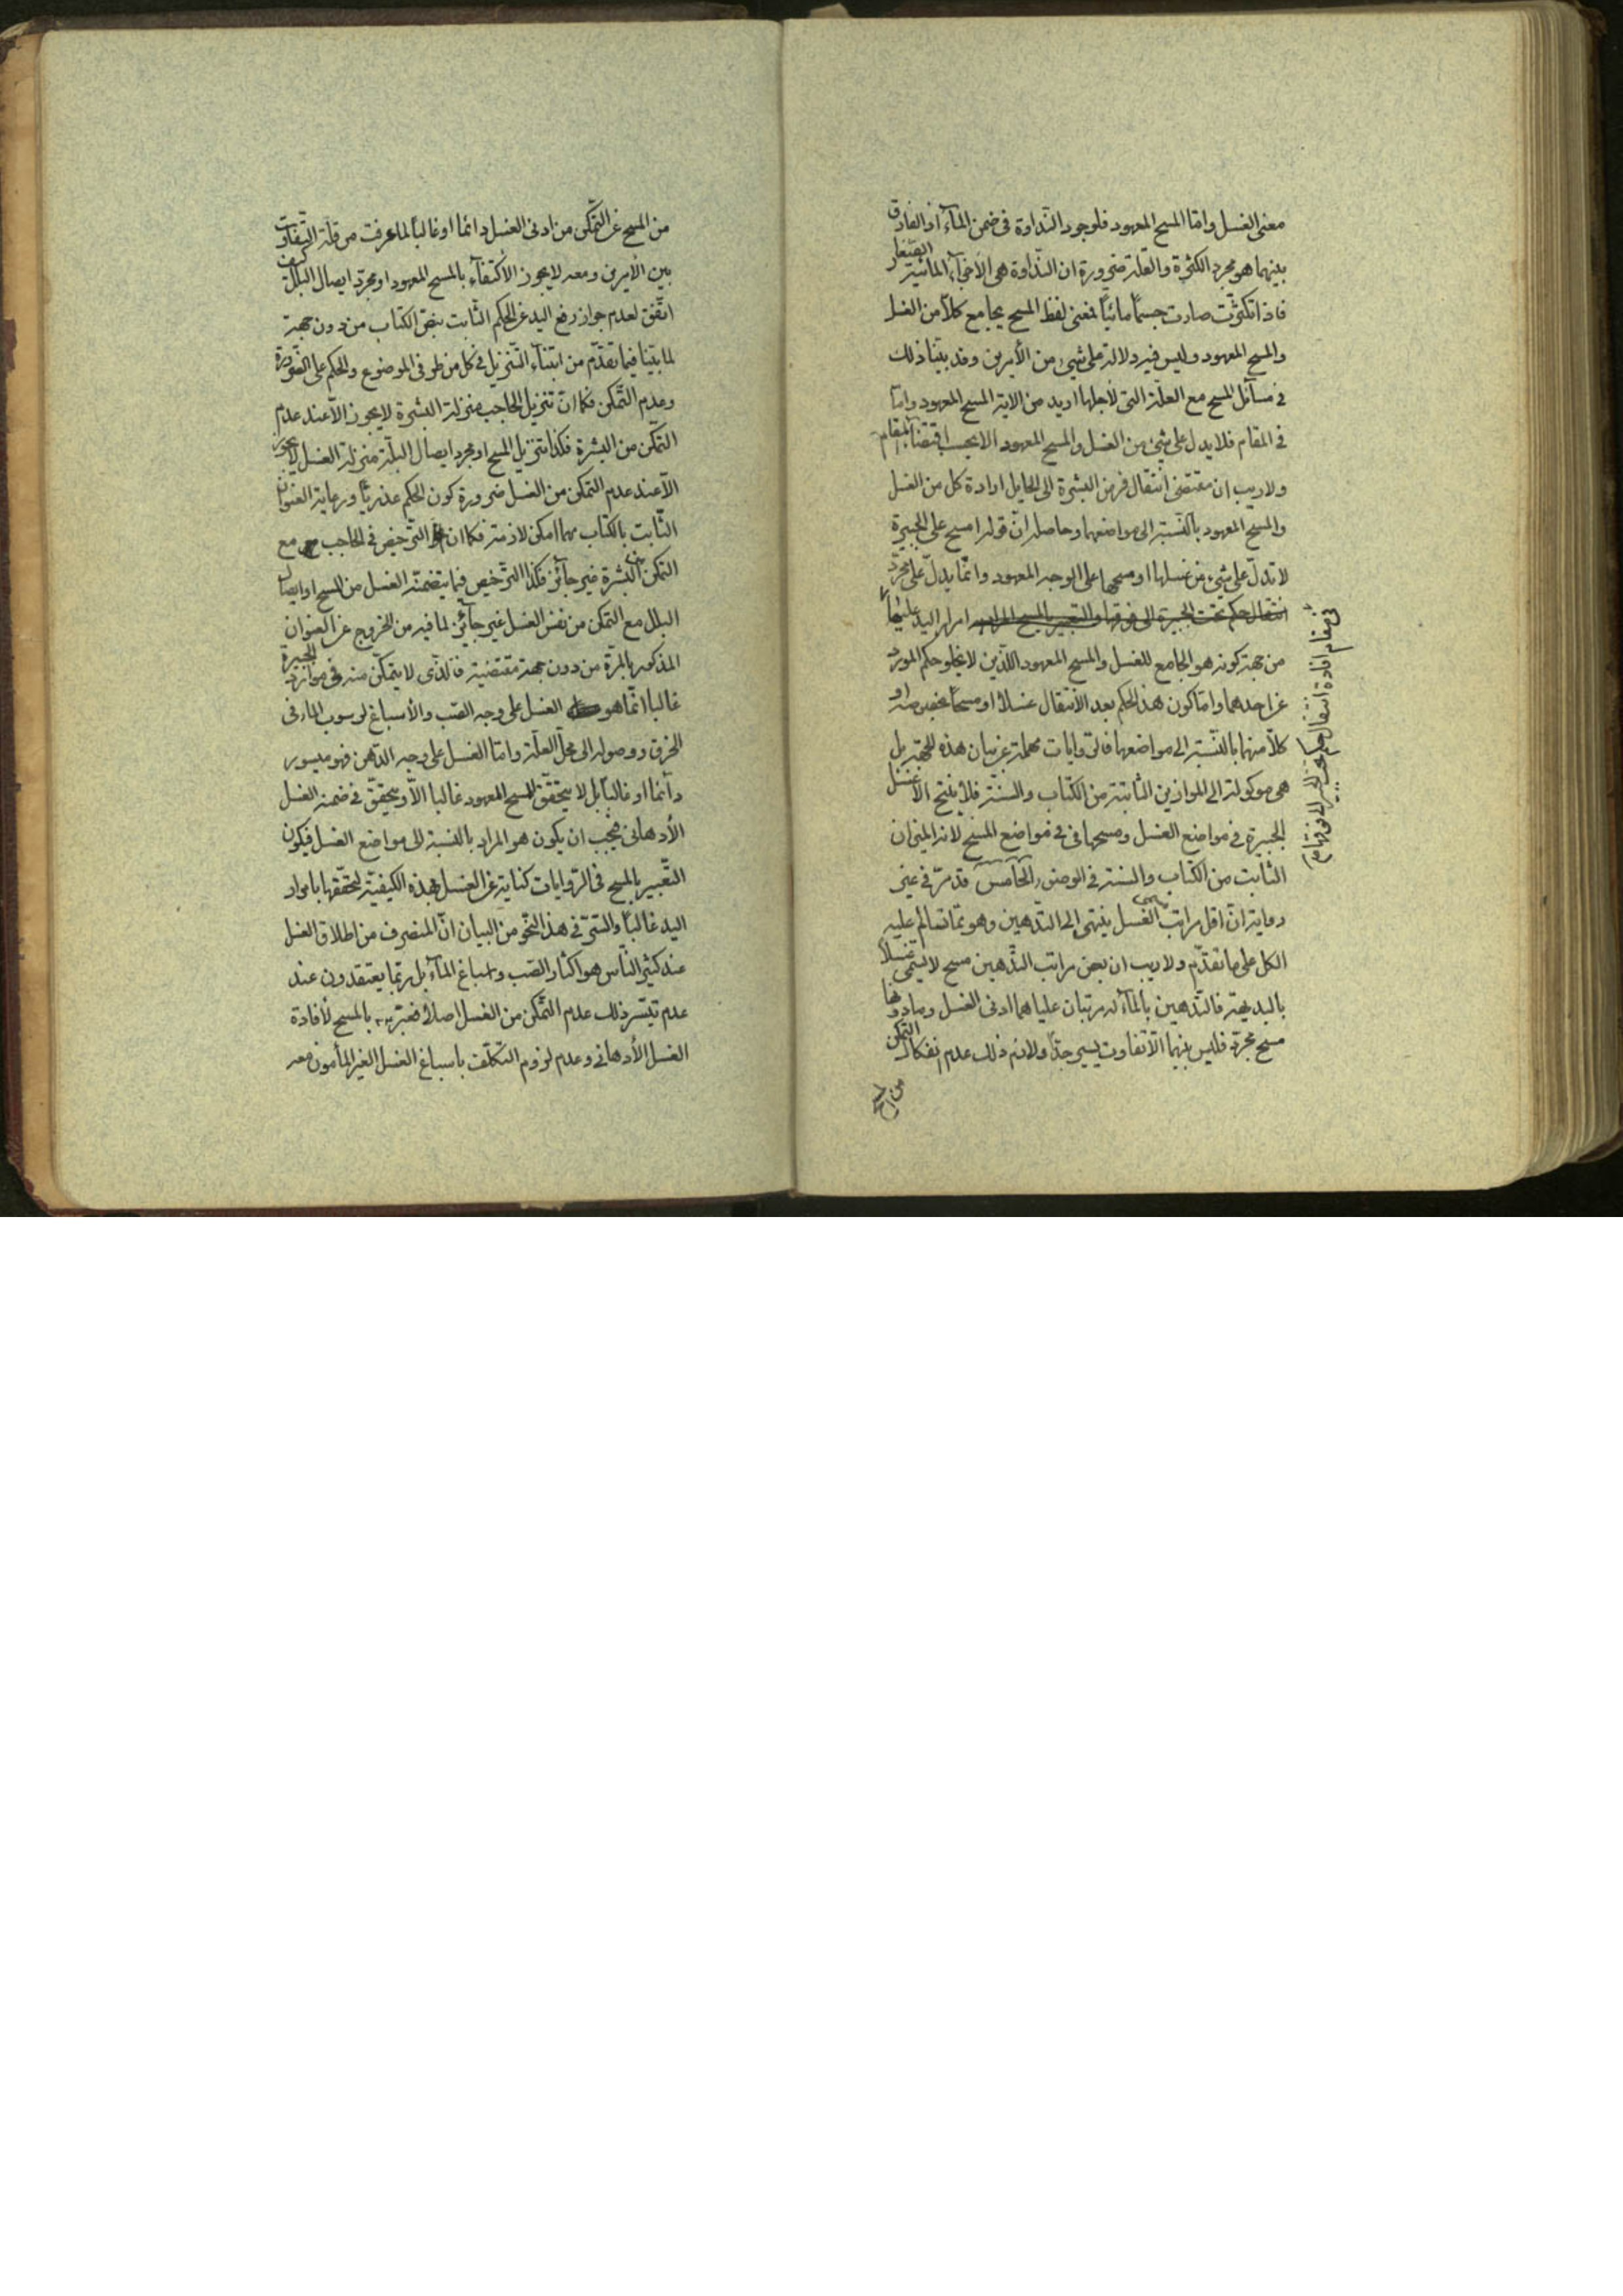 معنى الغسل وامّا المسح المعهود فلوجود النّداوة فى ضمن المآء اذ الفارق
بينهما هو مجرد الكثرة والقلّة ضرورة ان النّداوة هى الاجزآء المائية الصّغار
فاذا تكثّرت صارت جسمًا مائيًا فمعنى لفظ المسح يجامع كلّا من الغسل
والمسح المعهود وليس فيه دلالة على شيء من الأمرين وقد بيّنا ذلك
فى مسآئل المسح مع العلّة التى لأجلها اريد من الاية المسح المعهود وامّا
فى المقام فلا يدل على شيء من الغسل والمسح المعهود الا بحسب اقتضآء المقام
ولا ريب ان مقتضى انتقال فرض البشرة الى الحايل ارادة كل من الغسل
والمسح المعهود بالنّسبة الى مواضعها وحاصله انّ قوله امسح على الجبيرة
لا تدلّ على شيء من غسلها او مسحها على الوجه المعهود وانّما يدلّ على مجرّد
امرار اليد عليها
فى مقام افادة انتقال حكم ما تحت الجبيرة الى فوقها
من جهة كونه هو الجامع للغسل والمسح المعهود اللّذين لا يخلو حكم المورد
عن احدهما وامّا كون هذا الحكم بعد الأنتقال غسلًا او مسحًا بخصوصه او
كلّا منهما بالنّسبة الى مواضعها فالرّوايات مهملة عن بيان هذه الجهة بل
هى موكولة الى الموازين الثّابتة من الكتاب والسّنّة فلا ينتج الّا غسل
الجبيرة فى مواضع الغسل ومسحها فى مواضع المسح لانه الميزان
الثابت من الكتاب والسنة فى الوضوء الخامس قد مرّ فى غير
رواية انّ اقل مراتب الغسل ينتهى الى التدهين وهو ممّا تسالم عليه
الكل على ما تقدّم ولا ريب ان بعض مراتب التّدهين مسح لا يسمّى غسلًا
بالبديهة فالتّدهين بالمآء له مرتبتان علياهما ادنى الغسل وما دونها
مسح مجرّد فليس بينهما الّا تفاوت يسير جدًا ولازم ذلك عدم انفكاك التمكن
من المسح
من المسح عن التّمكّن من ادنى الغسل دائما او غالبًا لما عرفت من قلّة التّفاوت
بين الأمرين ومعه لا يجوز الأكتفآء بالمسح المعهود او مجرّد ايصال البلل كيف
اتّفق لعدم جواز رفع اليد عن الحكم الثّابت بنصّ الكتاب من دون جهة
لما بيّنا فيما تقدّم من ابتنآء التّنزيل فى كل من طرفى الموضوع والحكم على الضّرورة
وعدم التّمكّن فكما انّ تنزيل الحاجب منزلة البشرة لا يجوز الّا عند عدم
التمكّن من البشرة فكذا تنزيل المسح او مجرد ايصال البلّة منزلة الغسل لا يجوز
الّا عند عدم التمكن من الغسل ضرورة كون الحكم عذريًّا ورعاية العنوان
الثّابت بالكتاب مهما امكن لازمة فكما ان التّرخيص فى الحاجب مع
التمكن من البشرة غير جآئز فكذا التّرخيص فيما يتضمّنه الغسل من المسح او ايصال
البلل مع التمكن من نفس الغسل غير جآئز لما فيه من الخروج عن العنوان
المذكور بالمرّة من دون جهة مقتضية فالّذى لا يتمكّن منه فى موارد الجبيرة
غالبا انّما هو الغسل على وجه الصّب والأسباغ لرسوب المآء فى
الخرق ووصوله الى محل العلّة وامّا الغسل على وجه الدّهن فهو ميسور
دآئما او غالبًا بل لا يتحقّق المسح المعهود غالبا الّا ويتحقّق فى ضمنه الغسل
الأدهانى فيجب ان يكون هو المراد بالنسبة الى مواضع الغسل فيكون
التّعبير بالمسح فى الرّوايات كناية عن الغسل بهذه الكيفيّة لتحقّقها بامرار
اليد غالبًا والسّرّ فى هذا النّحو من البيان انّ المنصرف من اطلاق الغسل
عند كثير النّاس هو اكثار الصّب واسباغ المآء بل ربّما يعتقدون عند
عدم تيسّر ذلك عدم التّمكن من الغسل اصلًا فعبّر بالمسح لأفادة
الغسل الأدهانى وعدم لزوم التكلّف باسباغ الغسل الغير المأمون معه